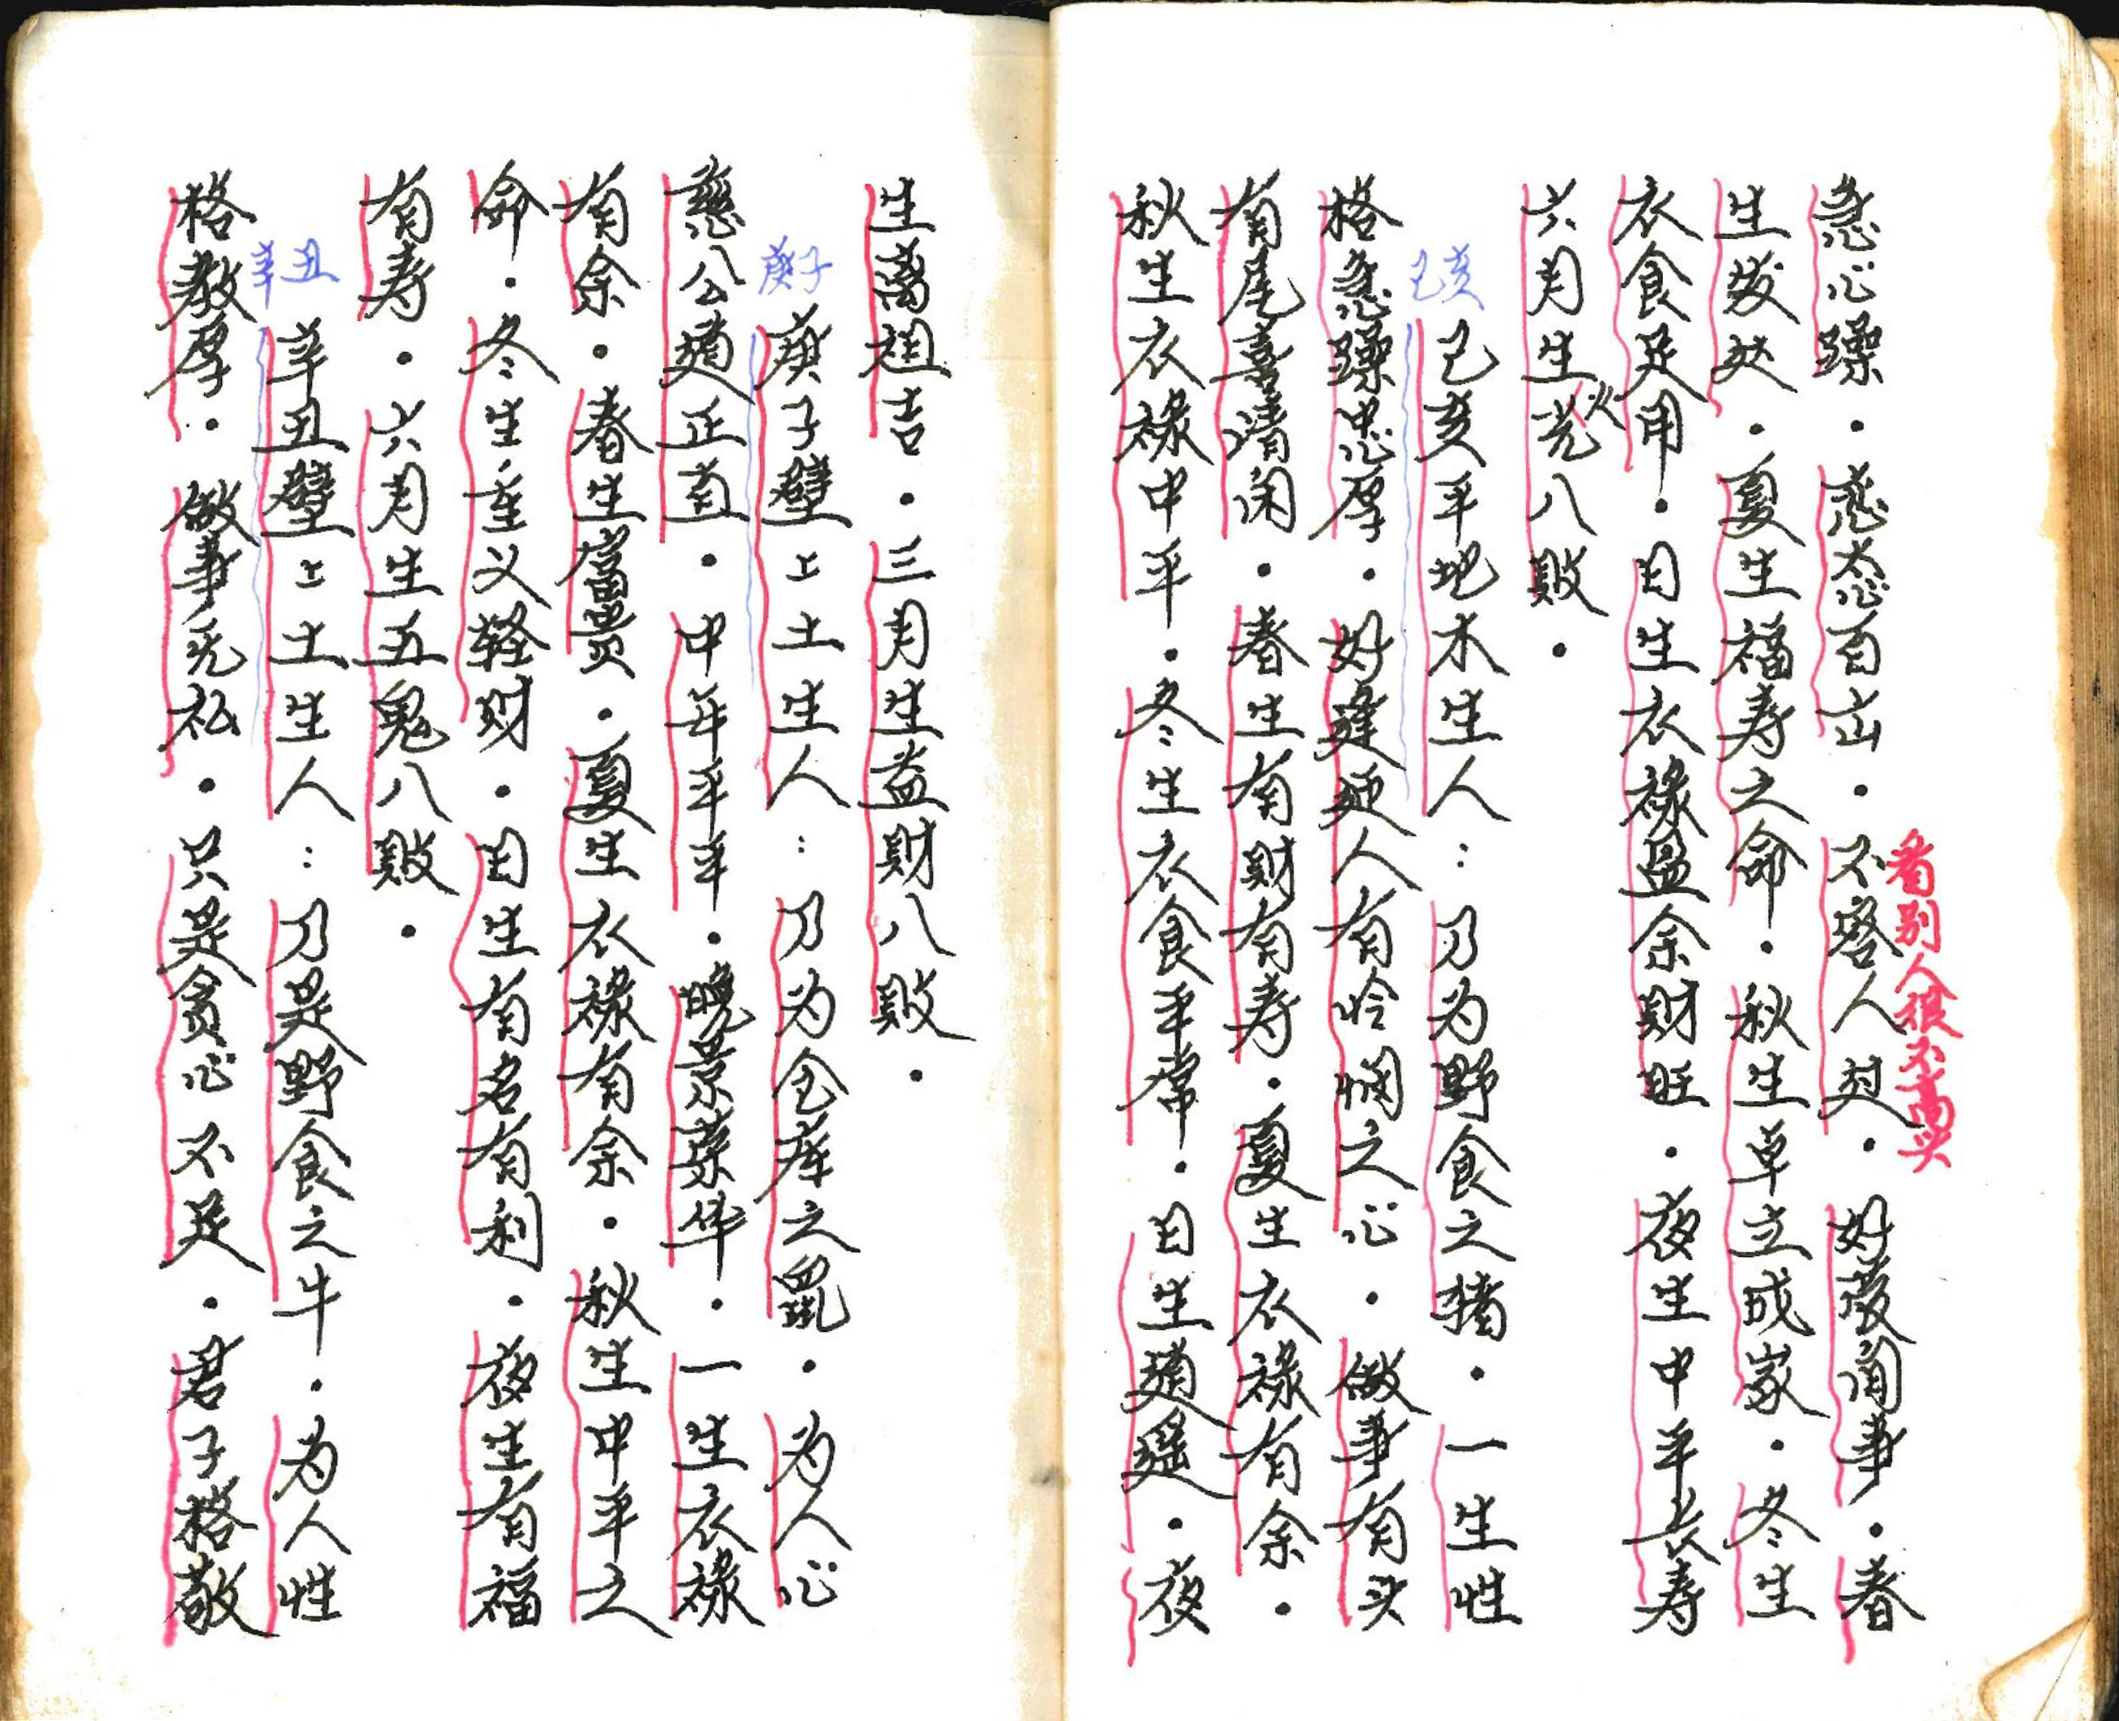 急心躁．惹大忿百出．不容人过．好荗闹事．春
看别人很不高兴
生发达．夏生福寿之命．秋生卓立成家．冬生
衣食足用．日生衣禄盈余财旺．夜生中平长寿
六月生光八败．
火
己亥
己亥平地木生人：乃为野食之猪．一生性
格急躁忠厚．好逢迎人有怜悯之心．做事有头
有尾喜清闲．春生有财有寿．夏生衣禄有余．
秋生衣禄中平．冬生衣食平常．日生逍遥．夜
生离祖吉．三月生益财八败．
庚子
庚子壁上土生人：乃为仓库之鼠．为人心
慈公道正直．中年平平．晚景荣华．一生衣禄
有余．春生富贵．夏生衣禄有余．秋生中平之
命．冬生重义轻财．日生有名有利．夜生有福
有寿．六月生五鬼八败．
辛丑
辛丑壁上土生人：乃是野食之牛．为人性
格敦厚．做事无私．只是贪心不足．君子格敬